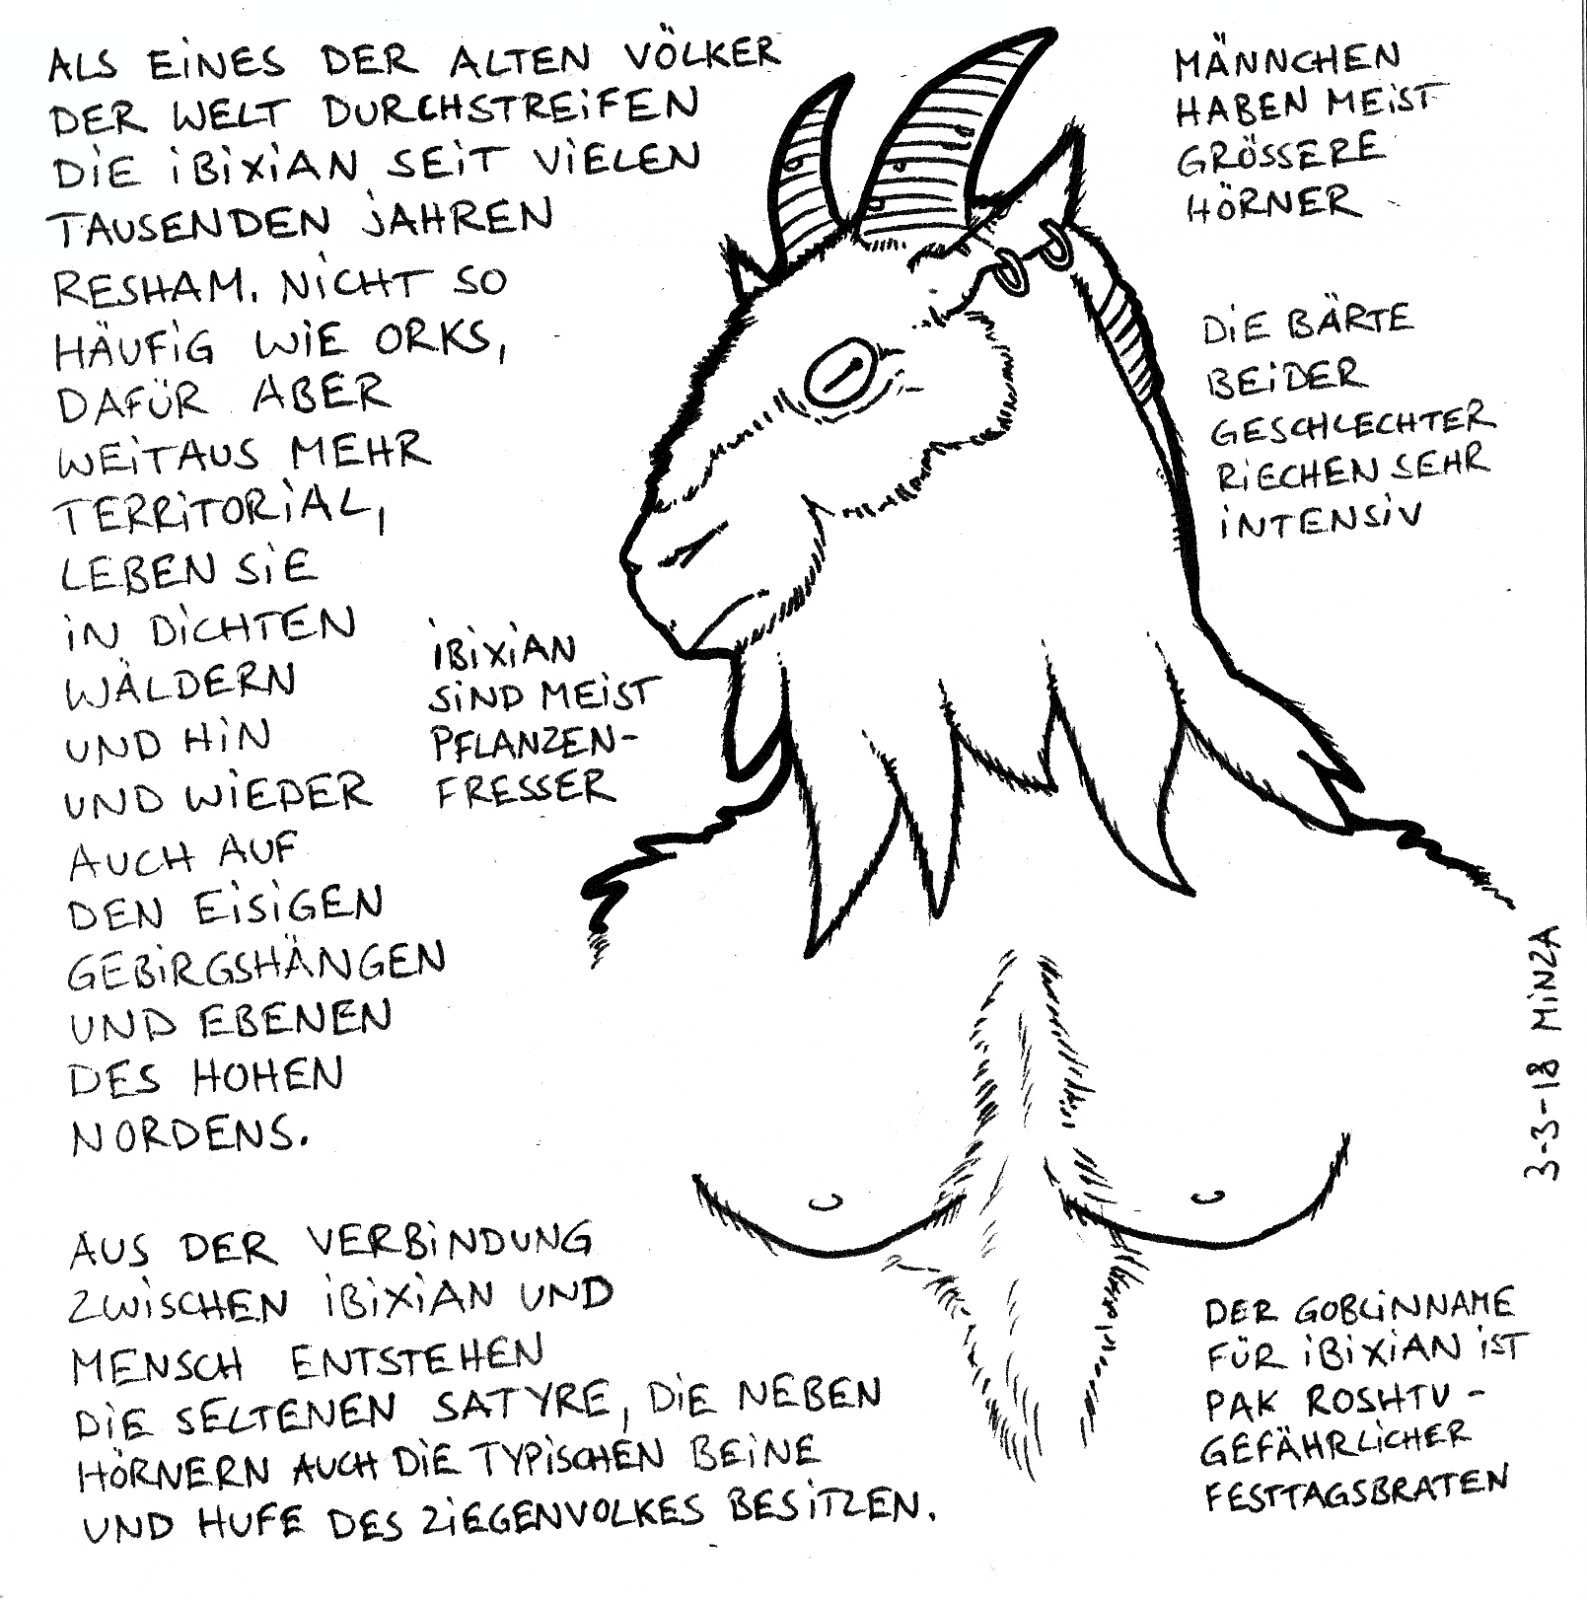 ALS EINES DER ALTEN VÖLKER
DER WELT DURCHSTREIFEN
DIE IBIXIAN SEIT VIELEN
TAUSENDEN JAHREN
RESHAM. NICHT SO
HÄUFIG WIE ORKS,
DAFÜR ABER
WEITAUS MEHR
TERRITORIAL,
LEBEN SIE
IN DICHTEN
WÄLDERN
UND HIN
UND WIEDER
AUCH AUF
DEN EISIGEN
GEBIRGSHÄNGEN
UND EBENEN
DES HOHEN
NORDENS.
AUS DER VERBINDUNG
ZWISCHEN IBIXIAN UND
MENSCH ENTSTEHEN
DIE SELTENEN SATYRE, DIE NEBEN
HÖRNERN AUCH DIE TYPISCHEN BEINE
UND HUFE DES ZIEGENVOLKES BESITZEN.
IBIXIAN
SIND MEIST
PFLANZEN-
FRESSER
MÄNNCHEN
HABEN MEIST
GRÖSSERE
HÖRNER
DIE BÄRTE
BEIDER
GESCHLECHTER
RIECHEN SEHR
INTENSIV
3-3-18 MINZA
DER GOBLINNAME
FÜR IBIXIAN IST
PAK ROSHTU -
GEFÄHRLICHER
FESTTAGSBRATEN